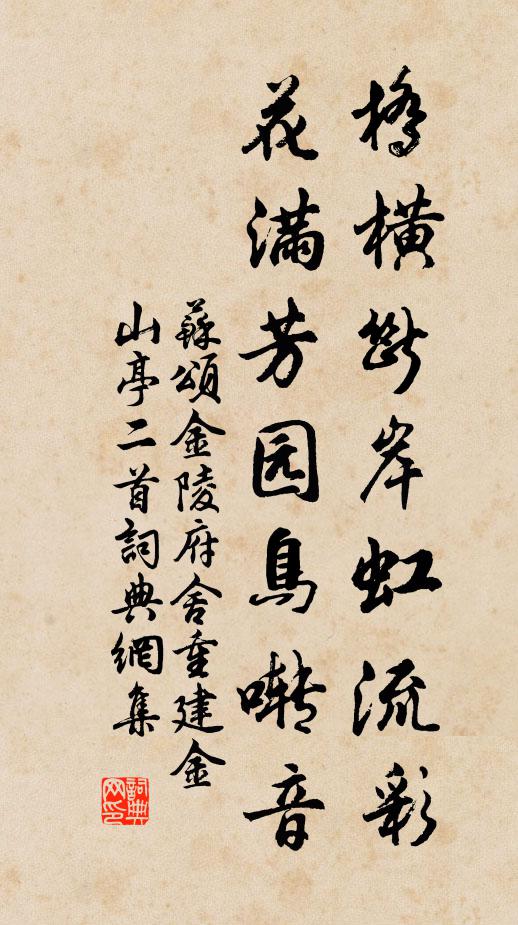 橋横斷岸虹流彩
花滿芳园鳥囀音
蘇頌金陵府舍重建金
山亭二首詞典網集
詞典網印